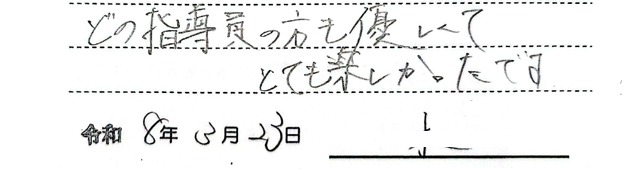 どの指導員の方も優しくて
とても楽しかったです
令和 8年 3月 23日